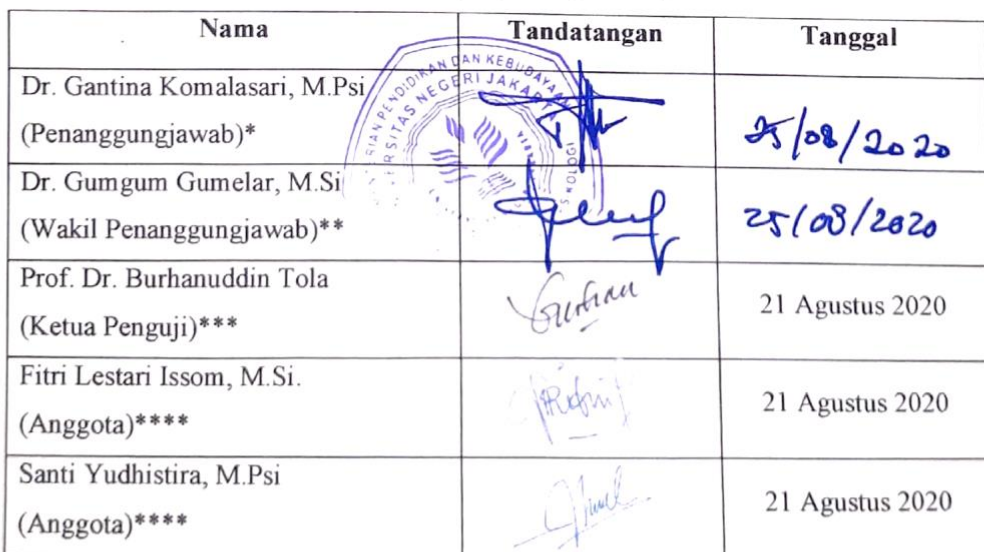 Nama Tandatangan Tanggal
Dr. Gantina Komalasari, M.Psi
(Penanggungjawab)* 25/08/2020
Dr. Gumgum Gumelar, M.Si
(Wakil Penanggungjawab)** 25/08/2020
Prof. Dr. Burhanuddin Tola
(Ketua Penguji)*** 21 Agustus 2020
Fitri Lestari Issom, M.Si.
(Anggota)**** 21 Agustus 2020
Santi Yudhistira, M.Psi
(Anggota)**** 21 Agustus 2020
RIAN PENDIDIKAN DAN KEBUDAYAAN
ERSITAS NEGERI JAKARTA